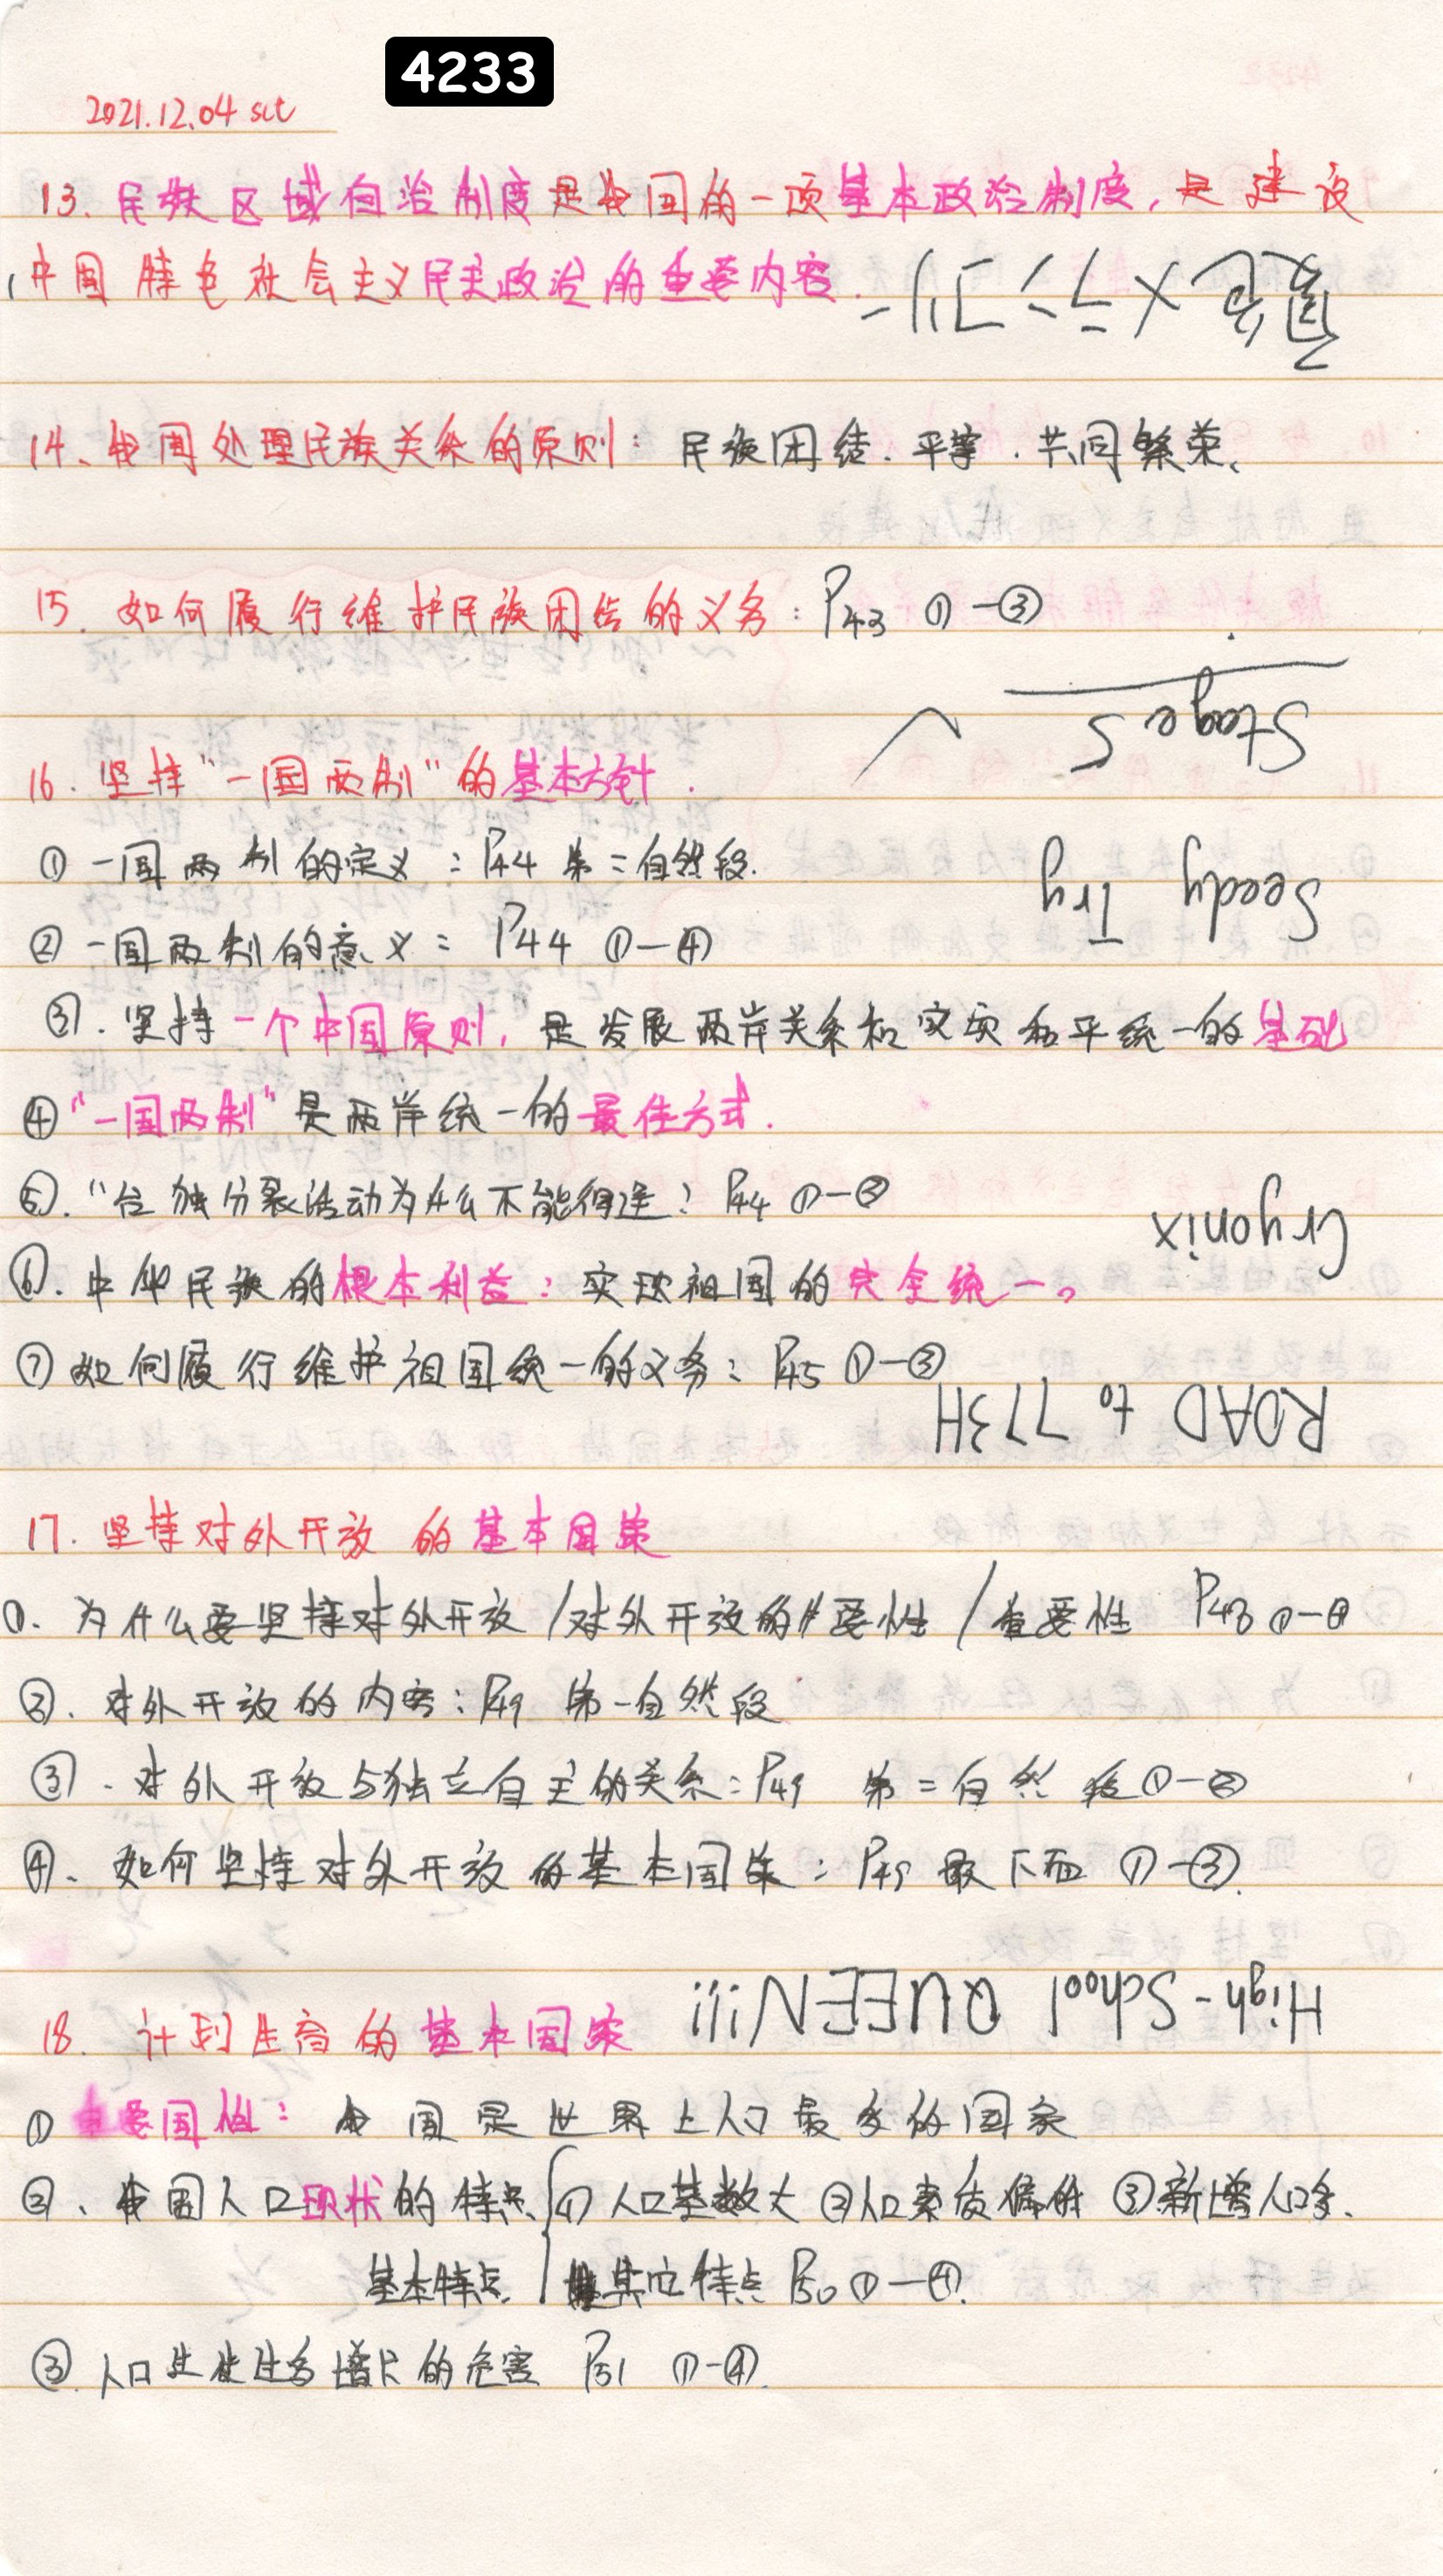 4233
2021.12.04 sat
13. 民族区域自治制度是我国的一项基本政治制度,是建设
中国特色社会主义民主政治的重要内容.
14、我国处理民族关系的原则:民族团结.平等.共同繁荣、
15. 如何履行维护民族团结的义务:P43 ①-③
Stage 5
16. 坚持"一国两制"的基本方针.
① 一国两制的定义:P44 第二自然段.
Seedy Try
② 一国两制的意义:P44 ①-④
③. 坚持一个中国原则,是发展两岸关系和实现和平统一的基础
④"一国两制"是两岸统一的最佳方式.
⑤."台独分裂活动为什么不能得逞? P44 ①-③
Cryonix
⑥. 中华民族的根本利益:实现祖国的完全统一。
⑦ 如何履行维护祖国统一的义务:P45 ①-③
ROAD to 773H
17. 坚持对外开放的基本国策
①. 为什么要坚持对外开放/对外开放的必要性/重要性 P48 ①-④
②. 对外开放的内容:P49 第一自然段
③. 对外开放与独立自主的关系:P49 第二自然段①-②
④、如何坚持对外开放的基本国策:P49 最下面 ①-③.
High-School QUEEN iii
18. 计划生育的基本国策
① 重要国性:我国是世界上人口最多的国家
②、我国人口现状的特点 ① 人口基数大 ②人口素质偏低 ③新增人口多、
基本特点 其它特点 P50 ①-④.
③. 人口过多增长的危害 P51 ①-④.